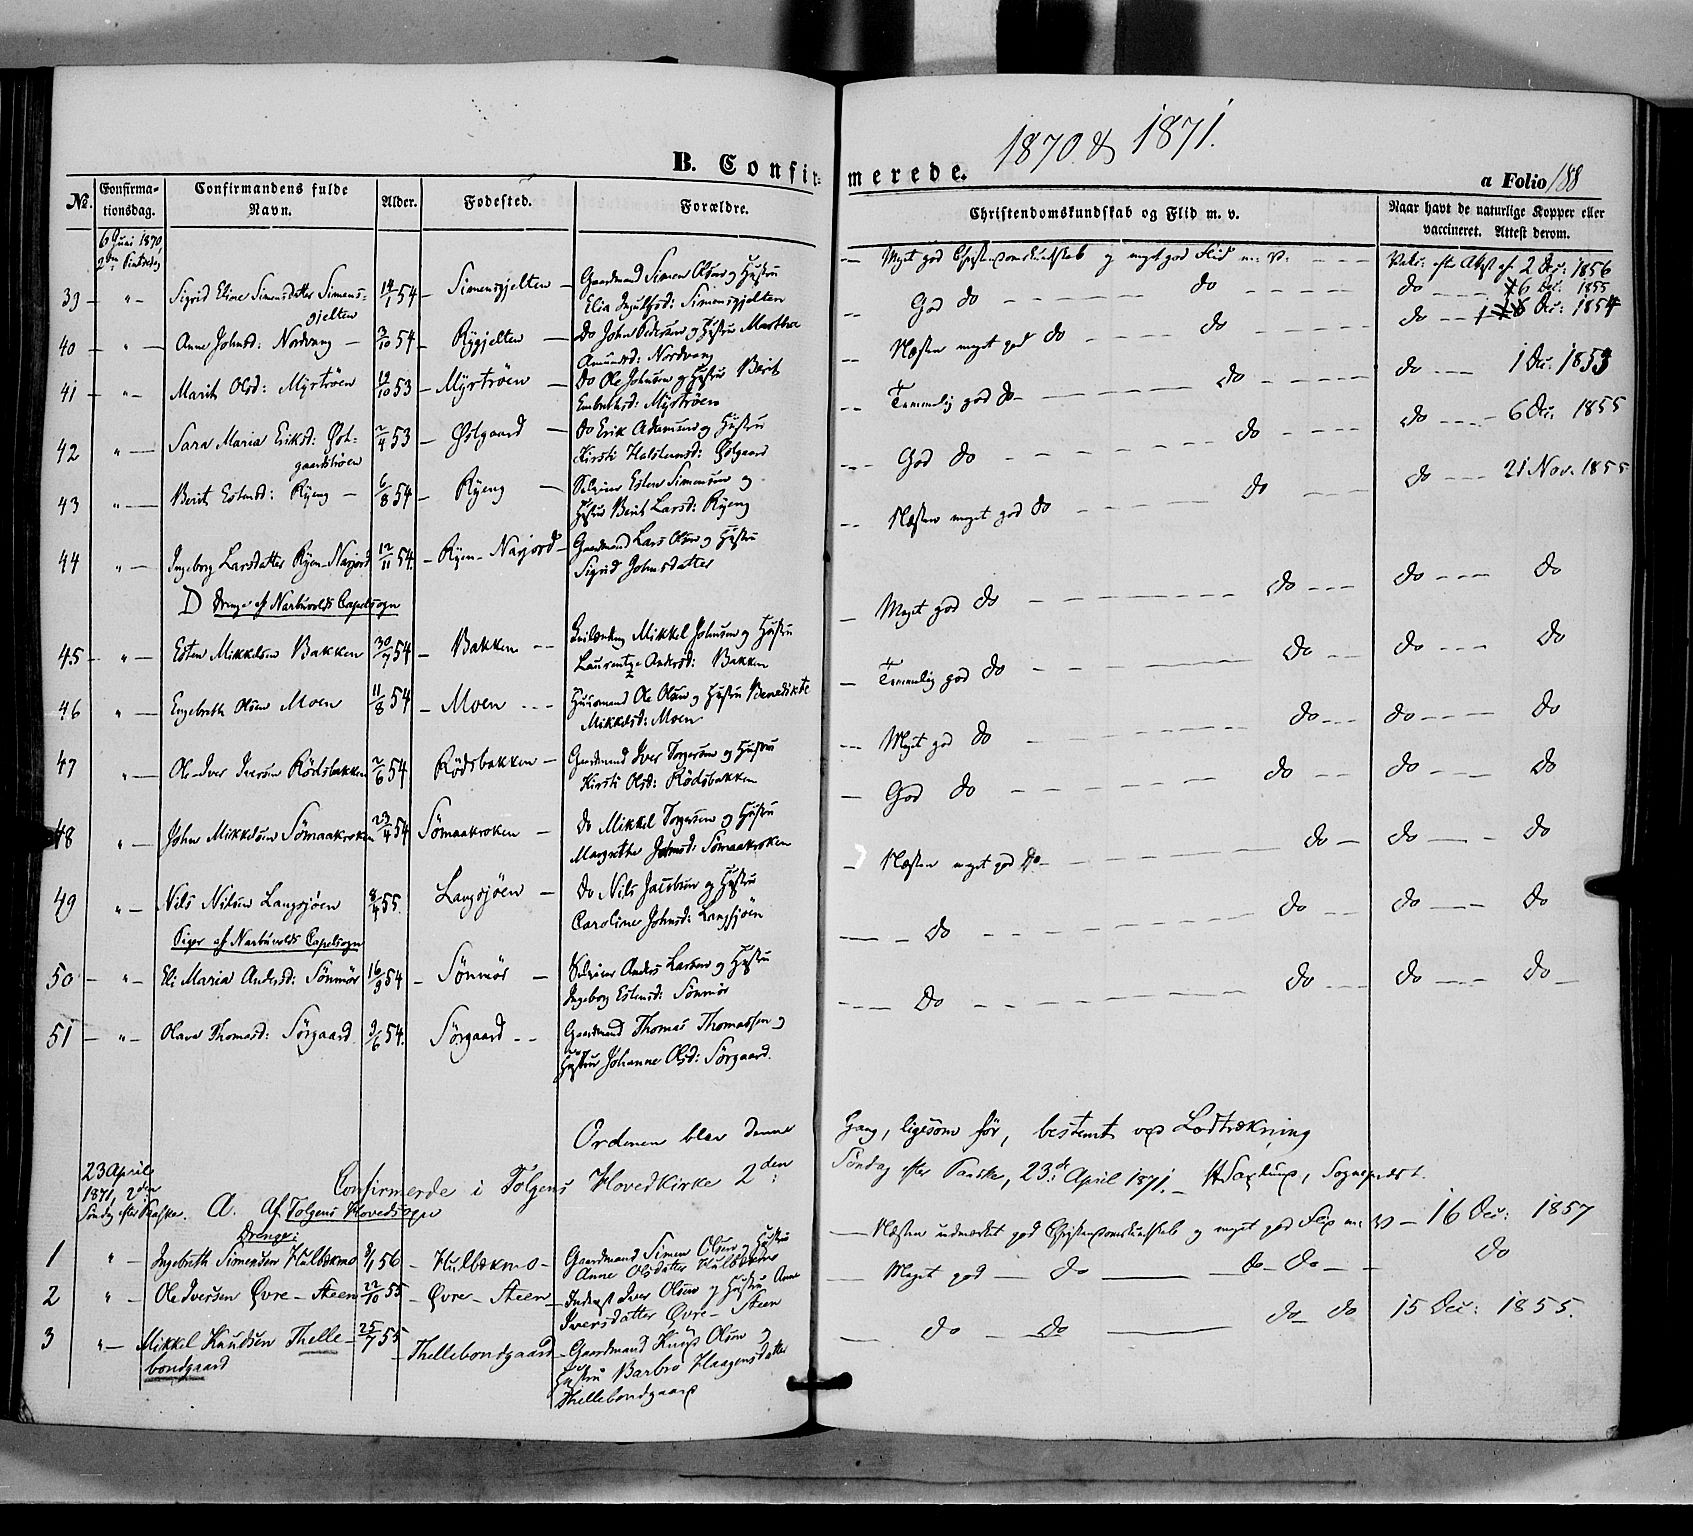 1870 & 1871.
B. Confirmerede.
a Folio 188
No. Confirma-tionsdag. Confirmandens fulde Navn. Alder. Fødested. Forældre. Christendomskundskab og Flid m. v. Naar havt de naturlige Kopper eller vaccineret. Attest derom.
6 Juni 1870
2den Pintsedag
39 " Sigrid Eline Simensdatter Simens- 14/1 54 Simensgjelten Gaardmand Simen Olsen og Hustru Meget god Christendomskundskab og meget god Flid m. v. Vakc: efter Attest af 2 Dec: 1856
gjelten Elia Ingulfsd: Simensgjelten
40 " Anne Johnsd: Nordvang 3/10 54 Rygjelten do John Pedersen og Hustru Marthe God do do do 6 Dec: 1855
Amundsd: Nordvang
41 " Marit Olsd: Myrtrøen 19/10 53 Myrtrøen do Ole Johnsen og Hustru Berit Næsten meget god do do do Dec: 1854
Embrethsd: Myrtrøen
42 " Sara Maria Eriksd: Øst- 2/4 53 Østgaard do Erik Adamsen og Hustru Temmelig god do do do 1 Dec: 1853
gaardstrøen Kirsti Halstensd: Østgaard
43 " Berit Estensd: Ryeng 6/8 54 Ryeng Esten Simensen og God do do do 6 Dec: 1855
Hustru Berit Larsd: Ryeng
44 " Ingeborg Larsdatter Ryen-Narjord 12/11 54 Ryen-Narjord Gaardmand Lars Olsen og Hustru Næsten meget god do do do 21 Nov. 1855
Sigrid Johnsdatter
D Drenge af Narbuvolds Capelsogn
45 " Esten Mikkelsen Bakken 30/7 54 Bakken Mikkel Johnsen og Hustru Meget god do do do do
Laurentze Andersd: Bakken
46 " Engebreth Olsen Moen 11/8 54 Moen Huusmand Ole Olsen og Hustru Benedikte Temmelig god do do do do
Mikkelsd: Moen
47 " Ole Iver Iversen Rødsbakken 2/6 54 Rødsbakken Gaardmand Iver Torgersen og Hustru Meget god do do do do
Kirsti Olsd: Rødsbakken
48 " John Mikkelsen Sømaakroken 23/4 54 Sømaakroken do Mikkel Torgersen og Hustru God do do do do
Margrethe Johnsd: Sømaakroken
49 " Nils Nilsen Langsjøen 8/4 55. Langsjøen do Nils Jacobsen og Hustru Næsten meget god do do do do
Caroline Johnsd: Langsjøen
Piger af Narbuvolds Capelsogn
50 " Eli Maria Andersd: Sønmør 16/9 54 Sønmør Anders Larsen og Hustru do do do do
Ingeborg Estensd: Sønmør
51 " Olava Thomasd: Sørgaard 9/6 54. Sørgaard Gaardmand Thomas Thomassen og do do do do
Hustru Johanne Olsd: Sørgaard.
Ordenen blev denne Gang, ligesom før, bestemt ved Lodtrækning
23 April 1871, 2den Søndag efter Paaske. Confirmerede i Tolgens Hovedkirke 2den Søndag efter Paaske, 23de April 1871. Sognepræst.
A. Af Tolgens Hovedsogn
Drenge:
1 " Ingebreth Simensen Hulbækmo 9/1 56 Hulbækmo Gaardmand Simen Olsen og Hustru Næsten udmærket god Christendomskundskab og meget god Flid m: v 16 Dec: 1857
Anne Olsdatter Hulbækmo
2 " Ole Iversen Øvre-Steen 22/10 55 Øvre-Steen Inderst Iver Olsen og Hustru Anne Meget god do do do do
Iversdatter Øvre-Steen
3 " Mikkel Knudsen Thelle- 25/7 55 Thellebondgaard Gaardmand Knud Olsen og do do do do 15 Dec: 1855.
bondgaard Hustru Barbro Haagensdatter
Thellebondgaard